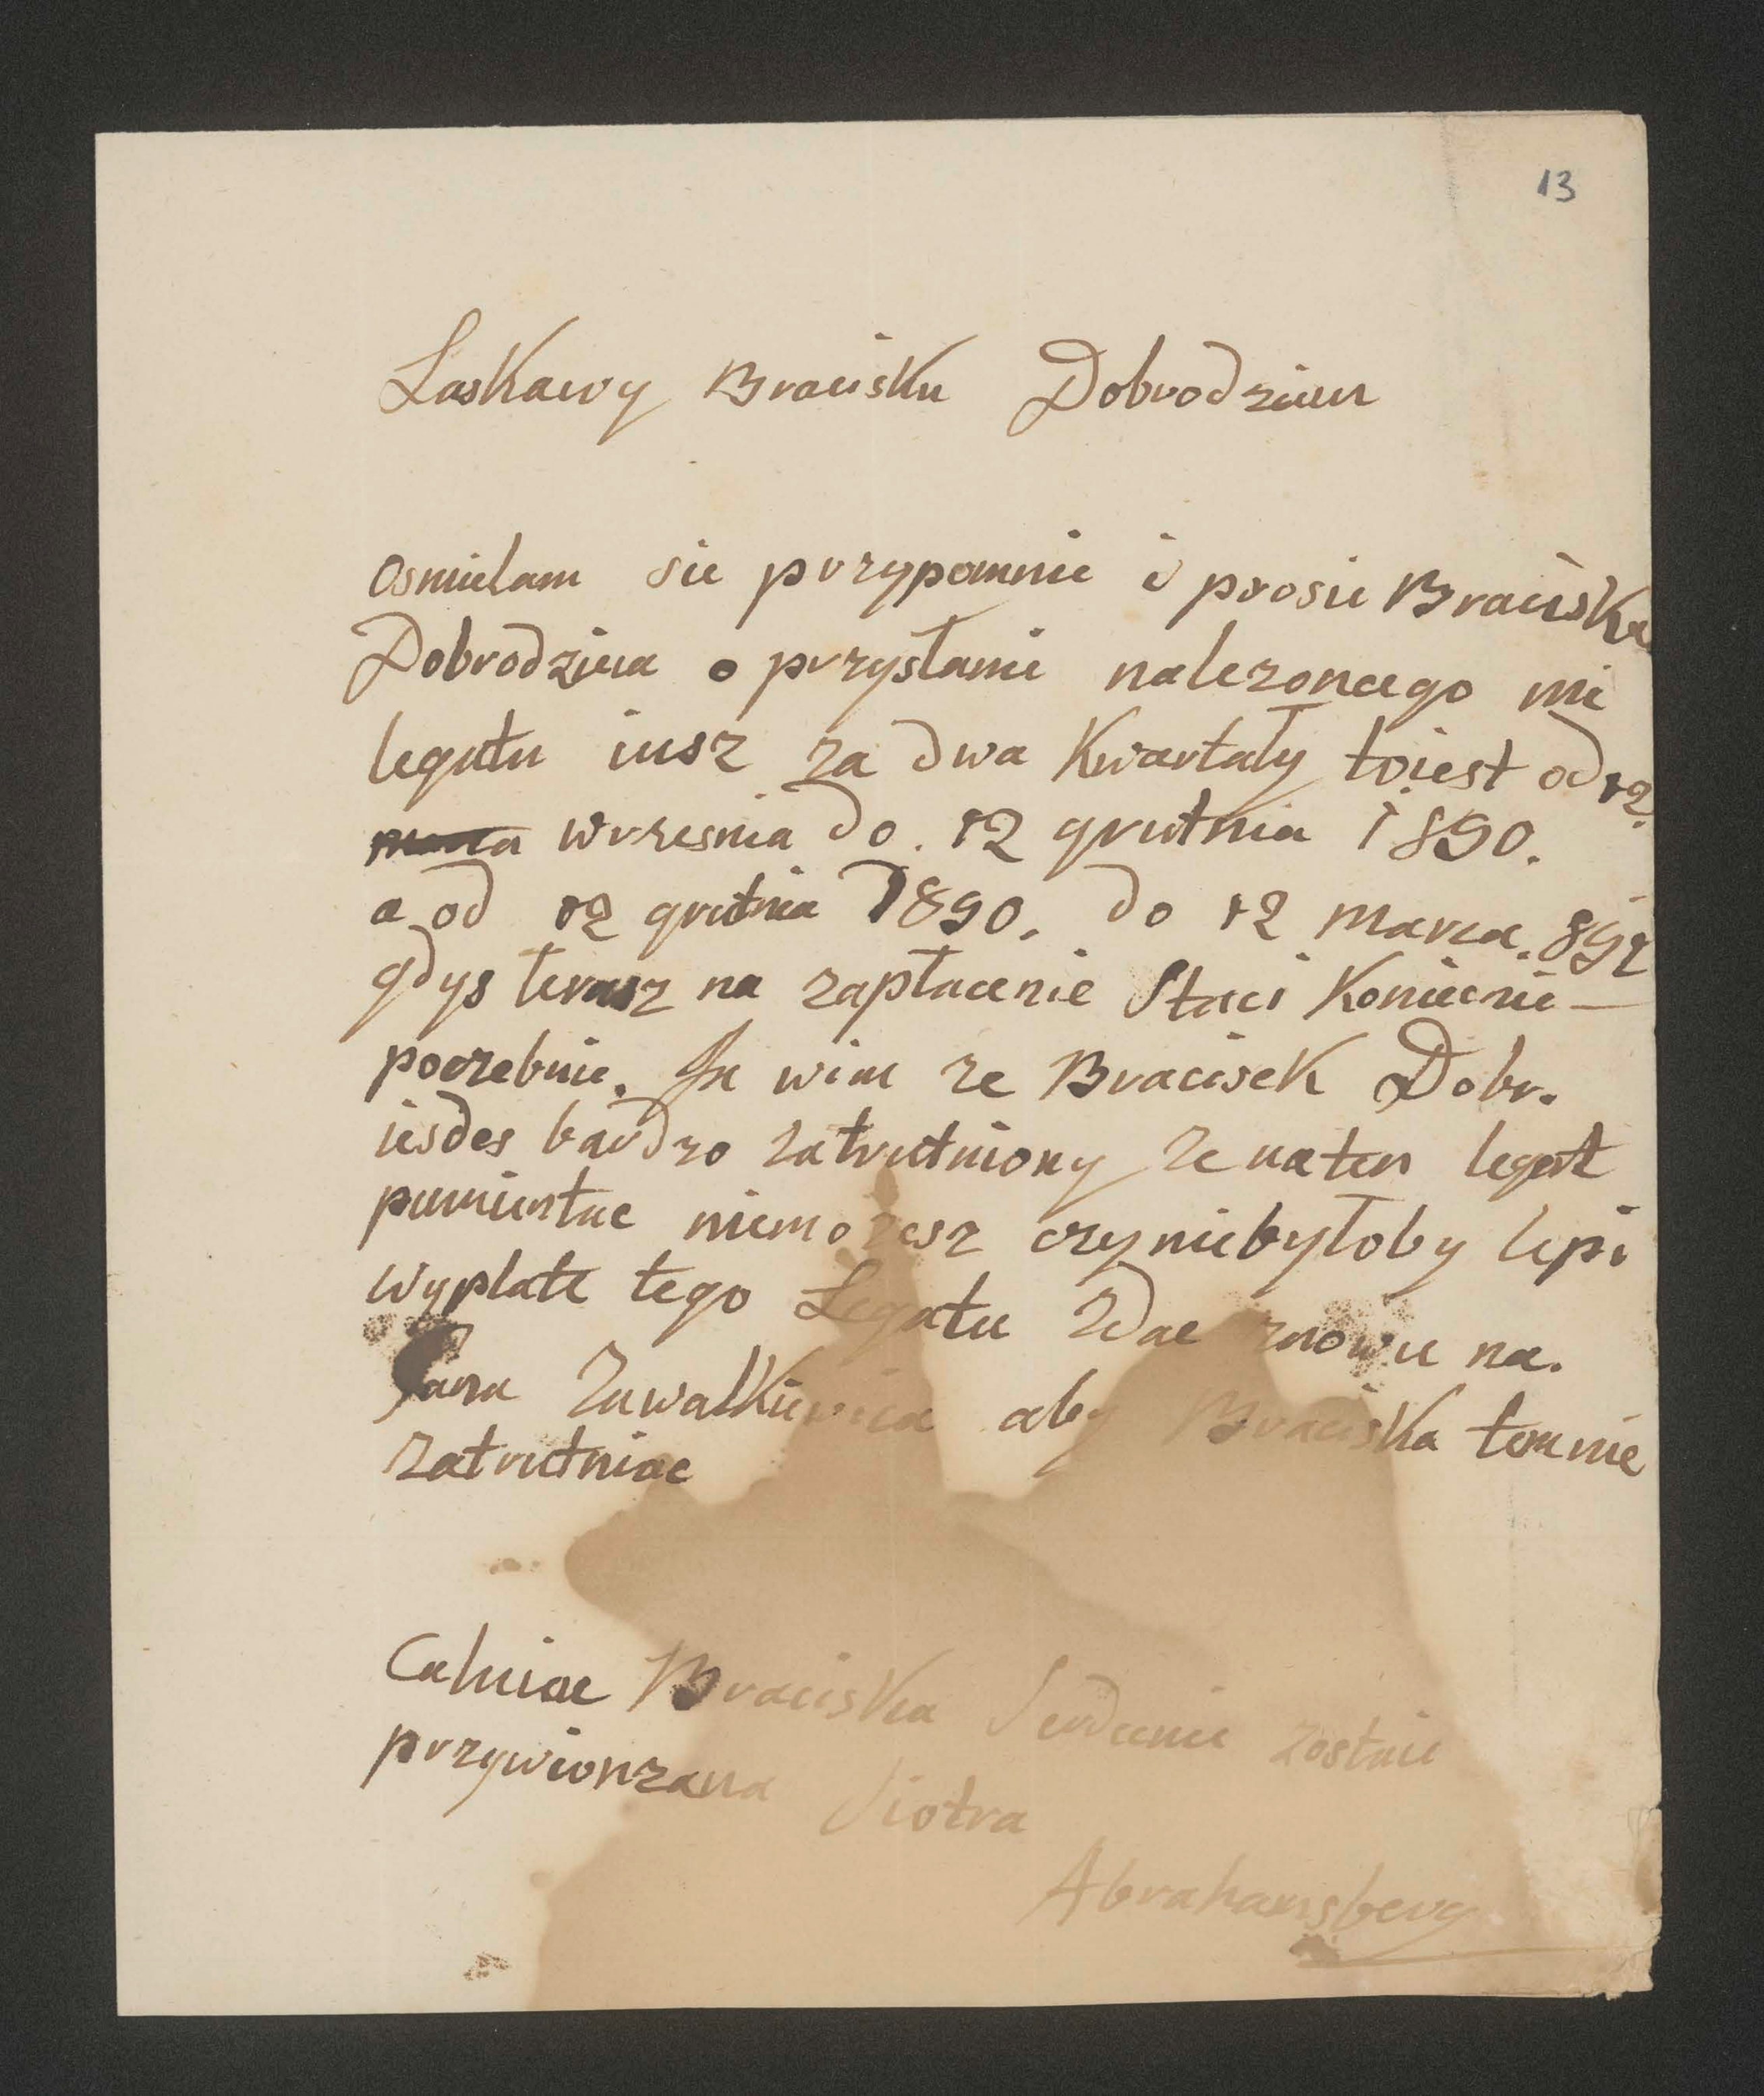 13
Laskawy Bracisku Dobrodzieu
Osmielam sie przypomnic i prosic Braciska
Dobrodziea o przysłanie nalezoncego mi
legatu iusz za dwa Kwartały toiest od 12.
wrzesnia do. 12 grutnia 1890.
a od 12 grutnia 1890. do 12 marca. 891
gdys terasz na zapłacenie Staci Koniecnie
poczebuie. Ja wim ze Bracisek Dobr.
iesdes bardzo zatrutniony ze naten legat
pamientac niemozesz czyniebyłoby lepi
wyplate tego Legatu zdac znowu na.
Pana Zawalkiewica aby Braciska tem nie
zatrutniac
Caluiac Braciska Serdecnie zostaie
przywionzana Siotra
Abrahamsberg